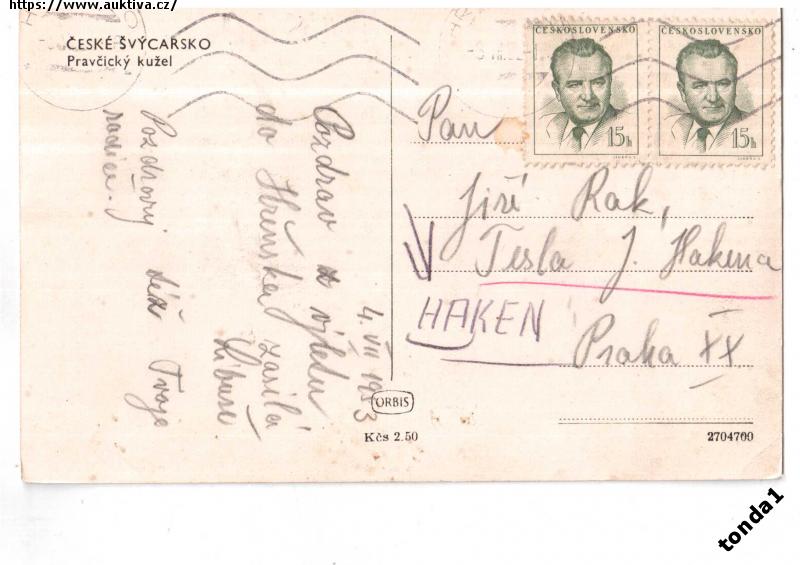 https://www.auktiva.cz/
ČESKÉ ŠVÝCARSKO
Pravčický kužel
ČESKOSLOVENSKO
15h
ČESKOSLOVENSKO
15h
4. VII 1953
Pozdrav z výletu
do Hřenska zasílá
Libuše
Pozdravuj též Tvoje
rodiče.
Pan
Jiří Rak,
Tesla J. Hakena
HAKEN
Praha XX
ORBIS
Kčs 2.50
2704700
tonda1